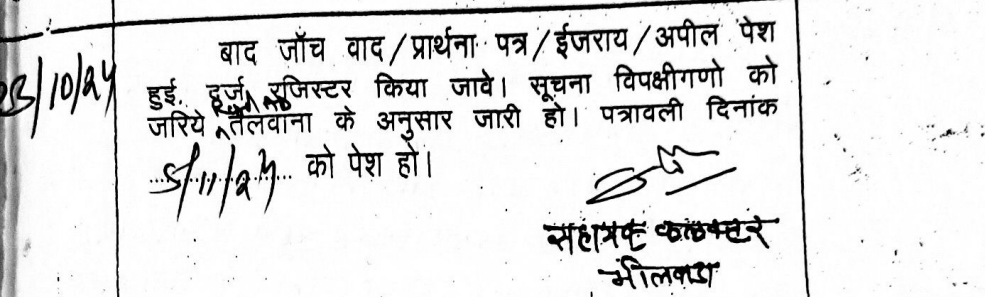 23/10/24
बाद जॉच वाद/प्रार्थना पत्र/ईजराय/अपील पेश
हुई. दर्ज रजिस्टर किया जावे। सूचना विपक्षीगणो को
जरिये तलवाना के अनुसार जारी हो। पत्रावली दिनांक
5/11/24 को पेश हो।
सहायक कलक्टर
भीलवाडा